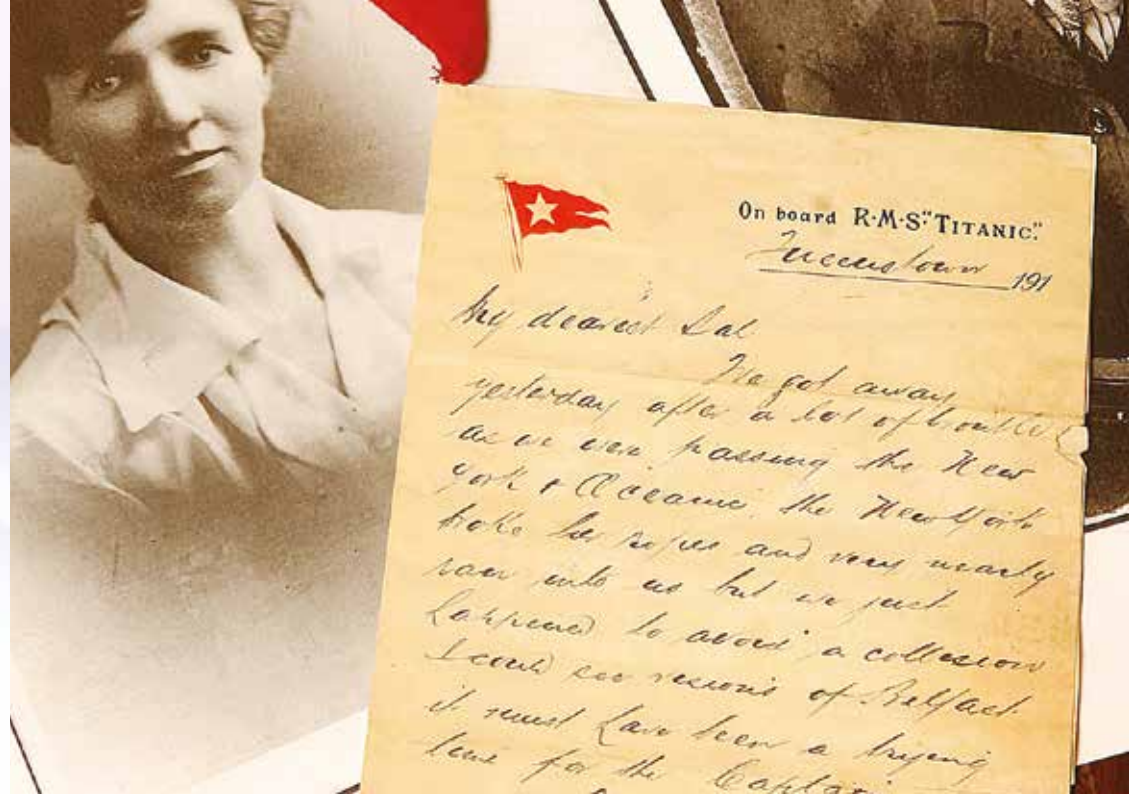 On board R·M·S. "TITANIC."
Queenstown 191
My dearest Sal
We got away
yesterday after a lot of trouble
as we were passing the New
York & Oceanic. the New York
broke her ropes and very nearly
ran into us but we just
happened to avoid a collession
I could see vesions of Belfast
it must have been a trying
time for the Captain